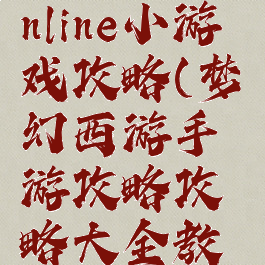 nline小游
戏攻略(梦
幻西游手
游攻略攻
略大全教